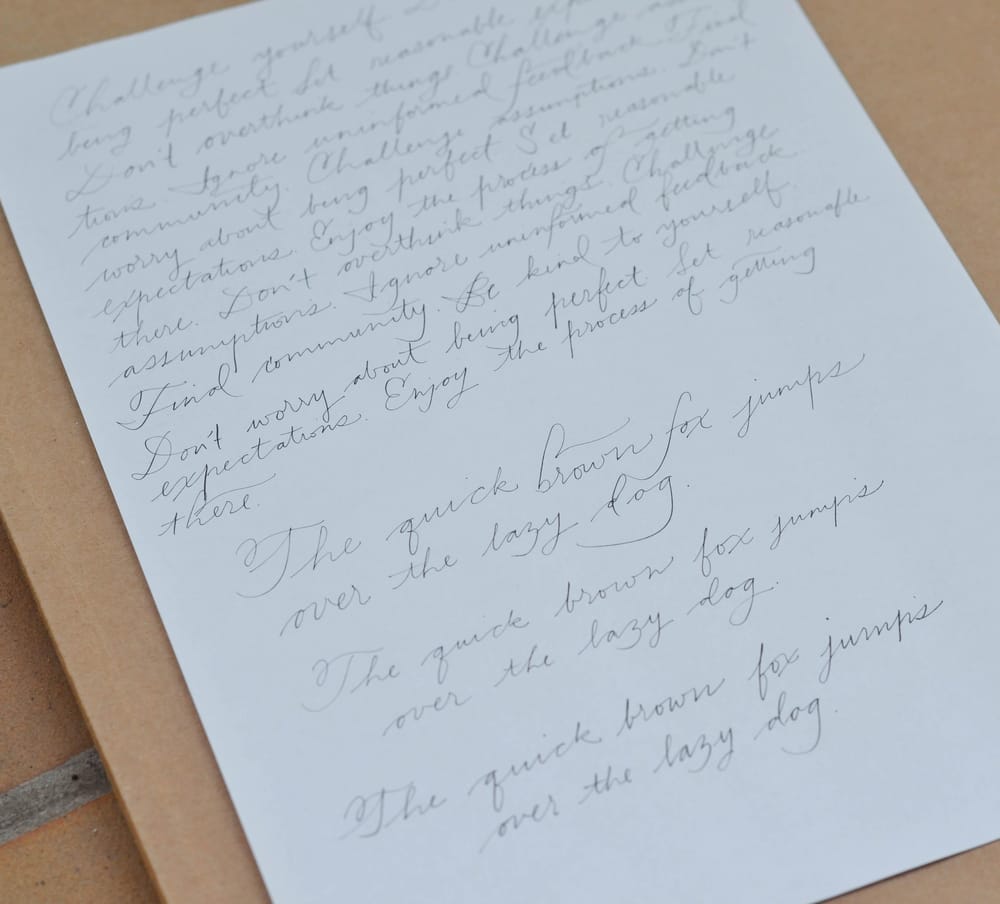 Challenge yourself
being perfect Set reasonable
Don't overthink things Challenge
tions Ignore uninformed feedback Find
community. Challenge assumptions. Don't
worry about being perfect Set reasonable
expectations. Enjoy the process of getting
there. Don't overthink things. Challenge
assumptions. Ignore uninformed feedback
Find community. Be kind to yourself.
Don't worry about being perfect Set reasonable
expectations. Enjoy the process of getting
there.
The quick brown fox jumps
over the lazy dog.
The quick brown fox jumps
over the lazy dog.
The quick brown fox jumps
over the lazy dog.